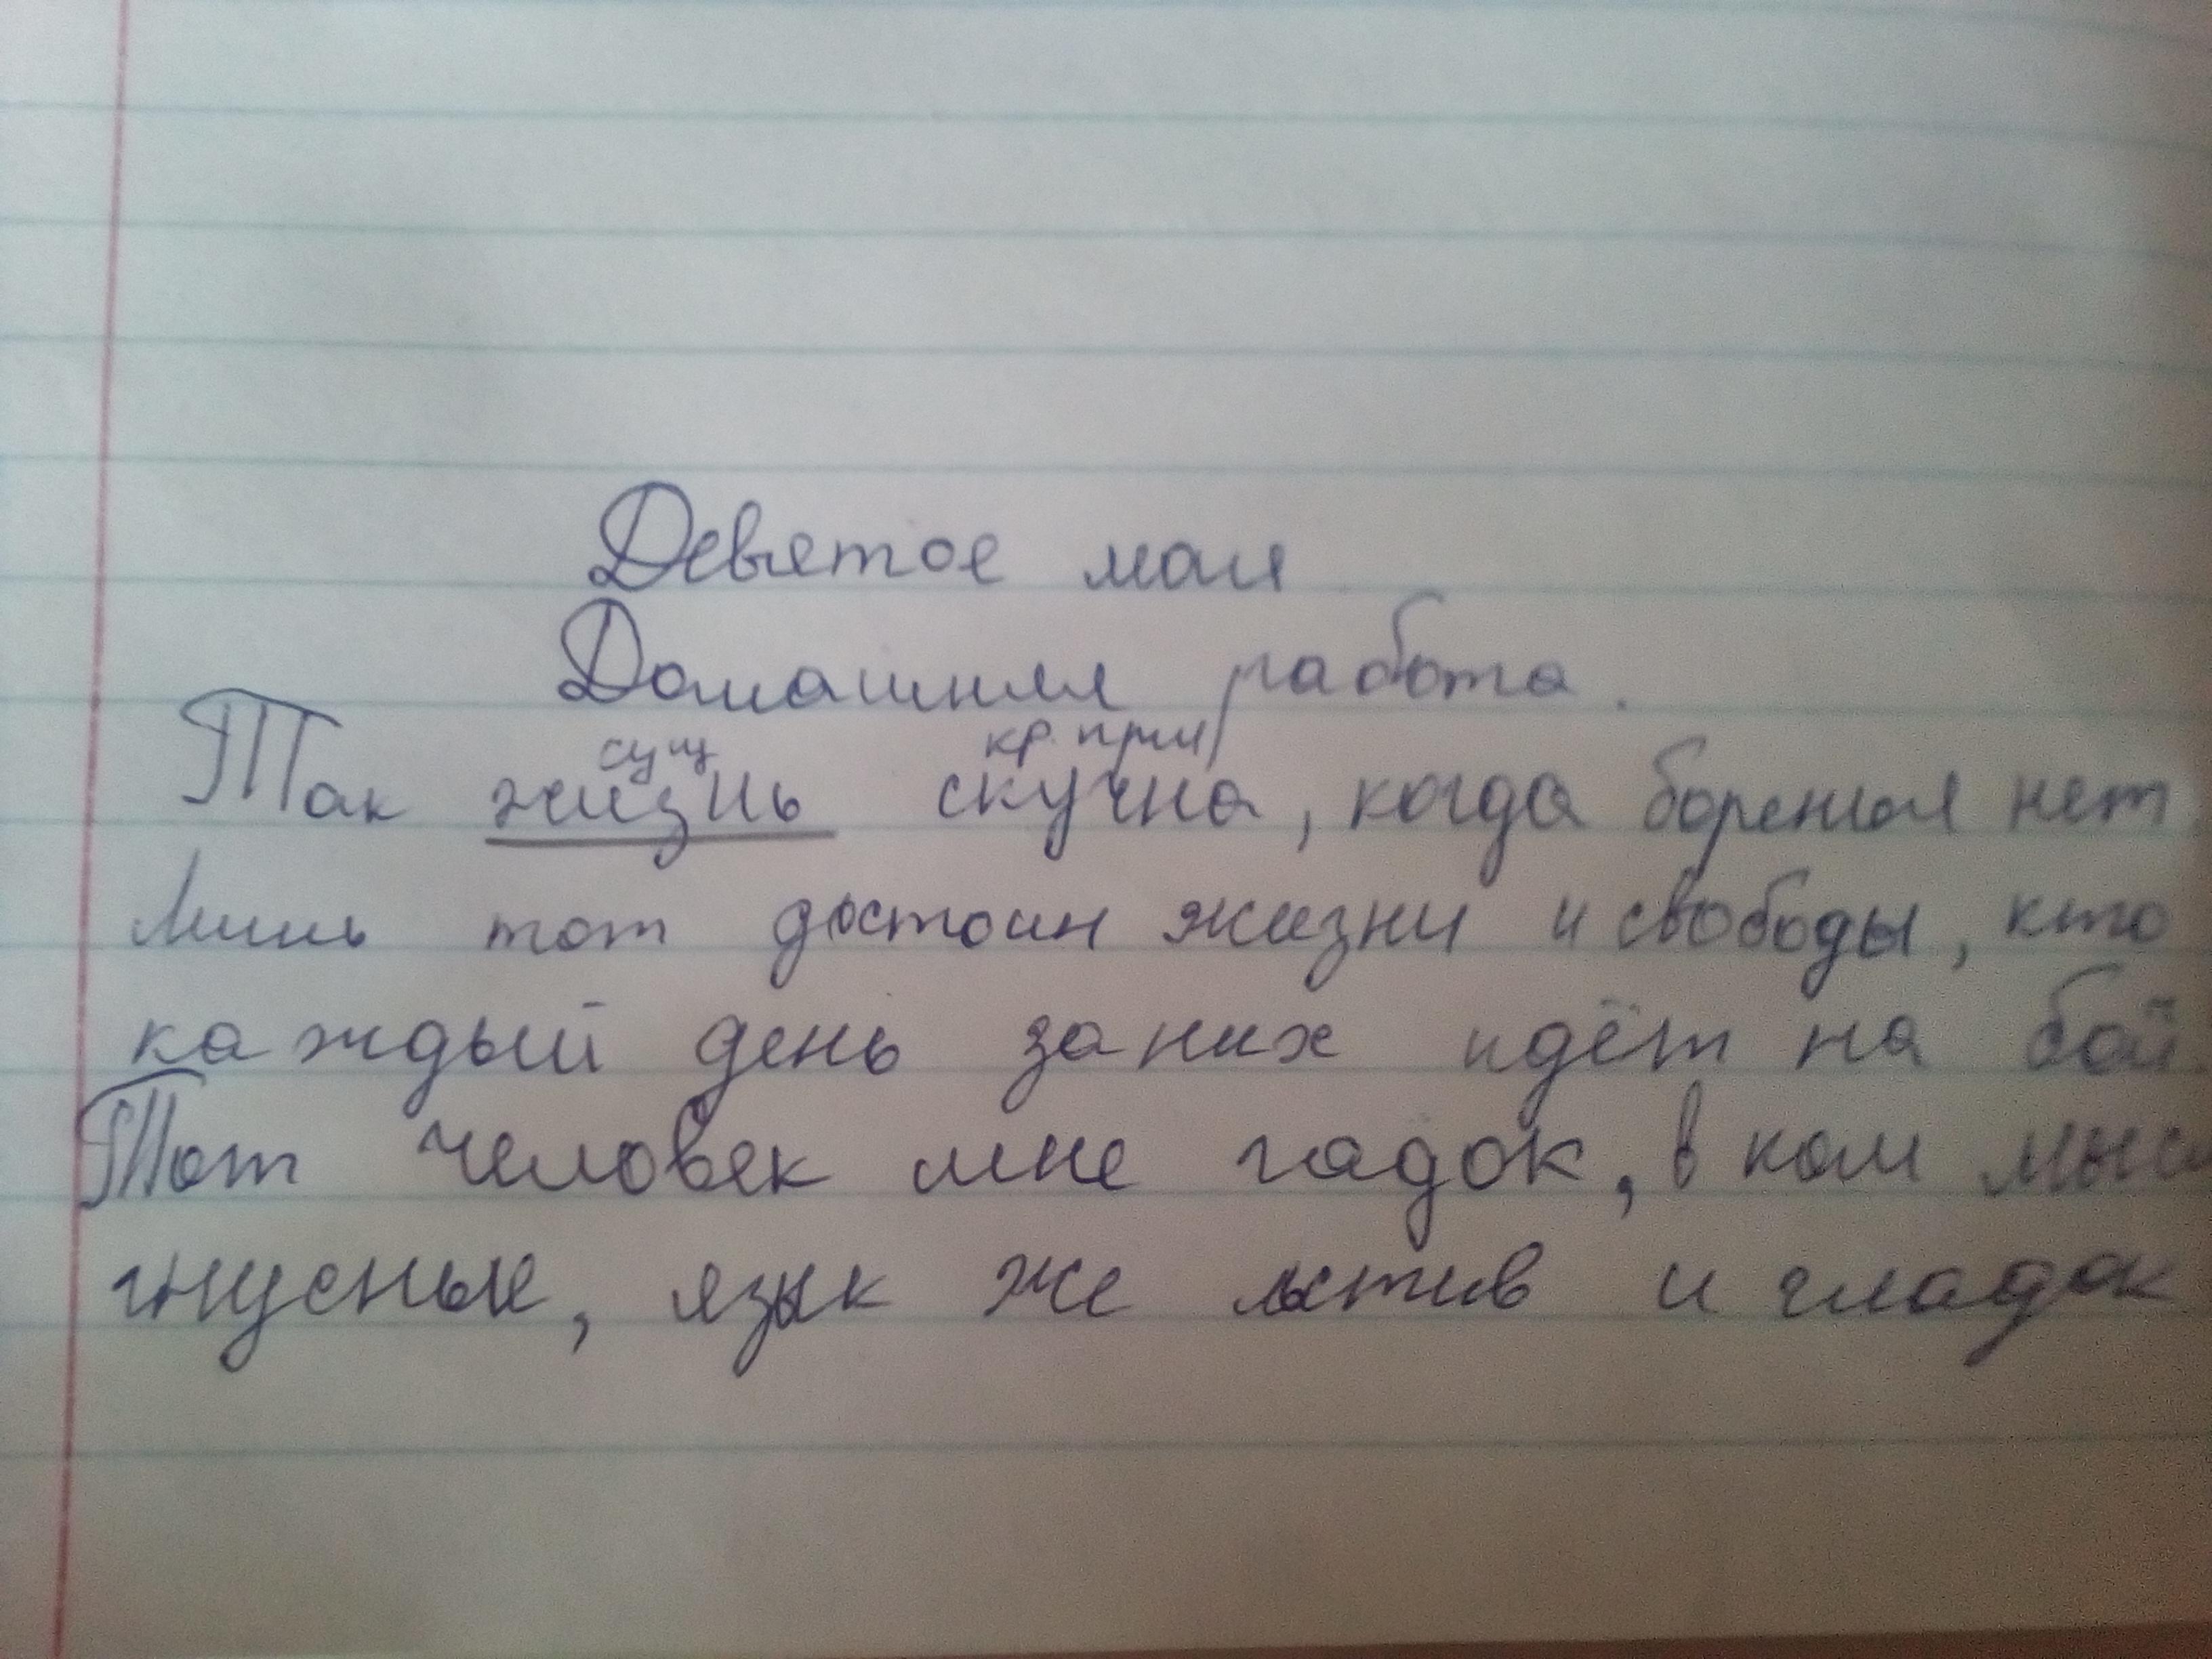 Девятое мая
Домашняя работа.
сущ кр. прил
Так жизнь скучна, когда боренья нет.
Лишь тот достоин жизни и свободы, кто
каждый день за них идёт на бой.
Тот человек мне гадок, в ком
гнусные, язык же льстив и гладок